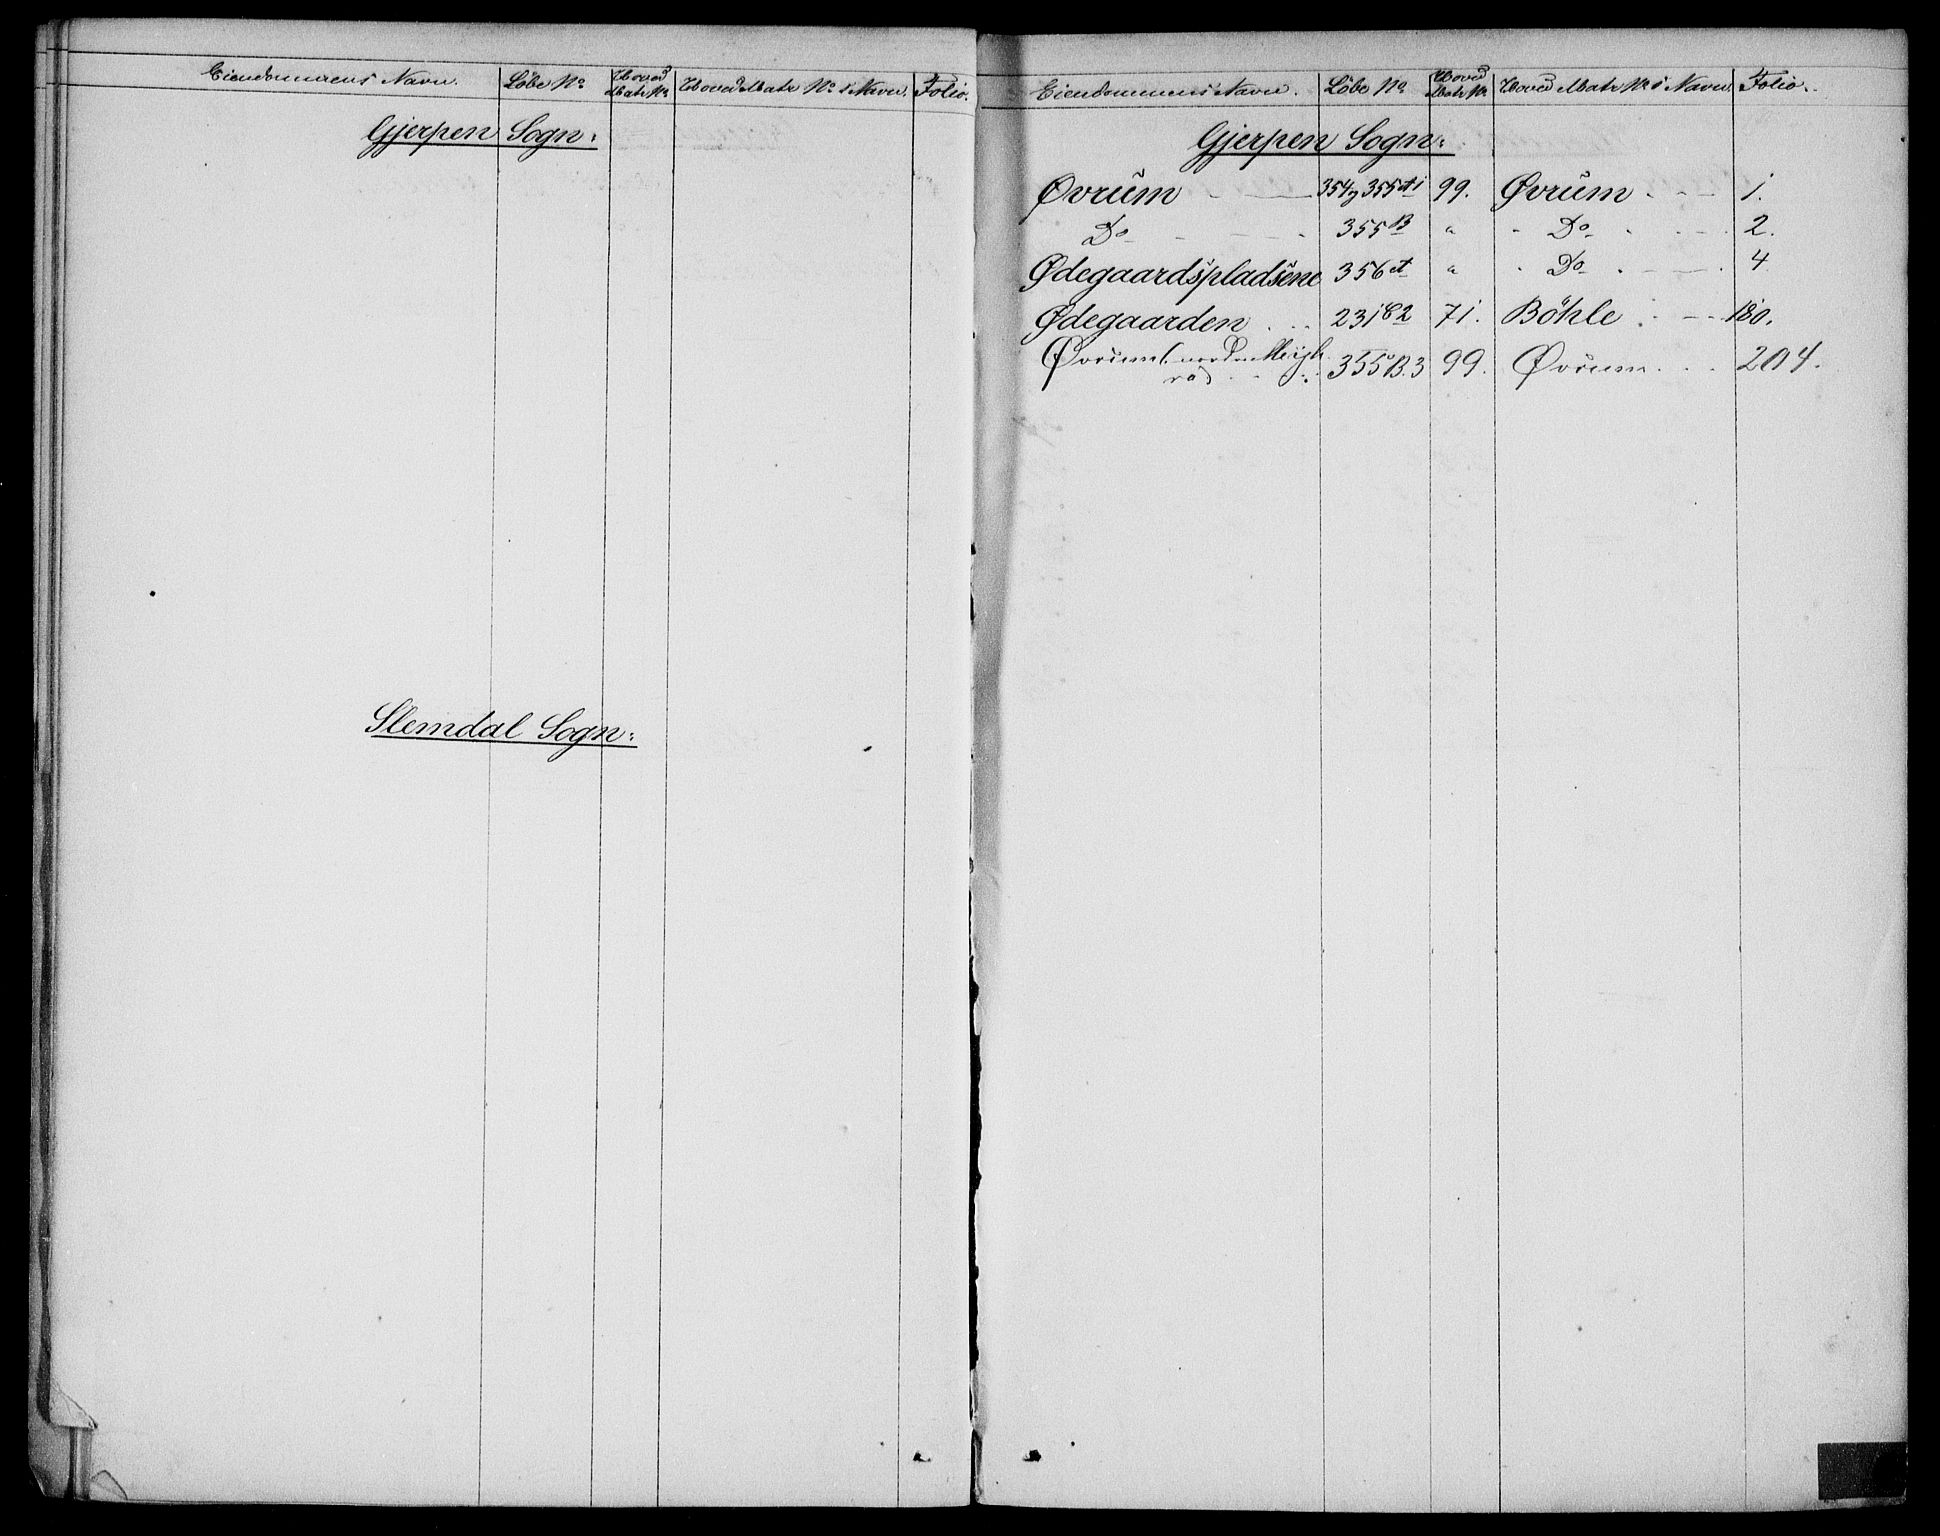 Eiendommens Navn. Löbe No Hoved Matr No Hoved Matr No s Navn. Folio.
Gjerpen Sogn:
Slemdal Sogn:
Eiendommens Navn. Löbe No Hoved Matr No Hoved Matr No s Navn Folio.
Gjerpen Sogn:
Øvrüm 354 og 355 A1 99. Øvrüm 1.
Do 355 B " " Do 2.
Ødegaardspladsene 356 A " " Do 4
Ødegaarden 231 C2 71. Böhle 180.
Øvrüm ( 355 B.3 99. Øvrüm 204.